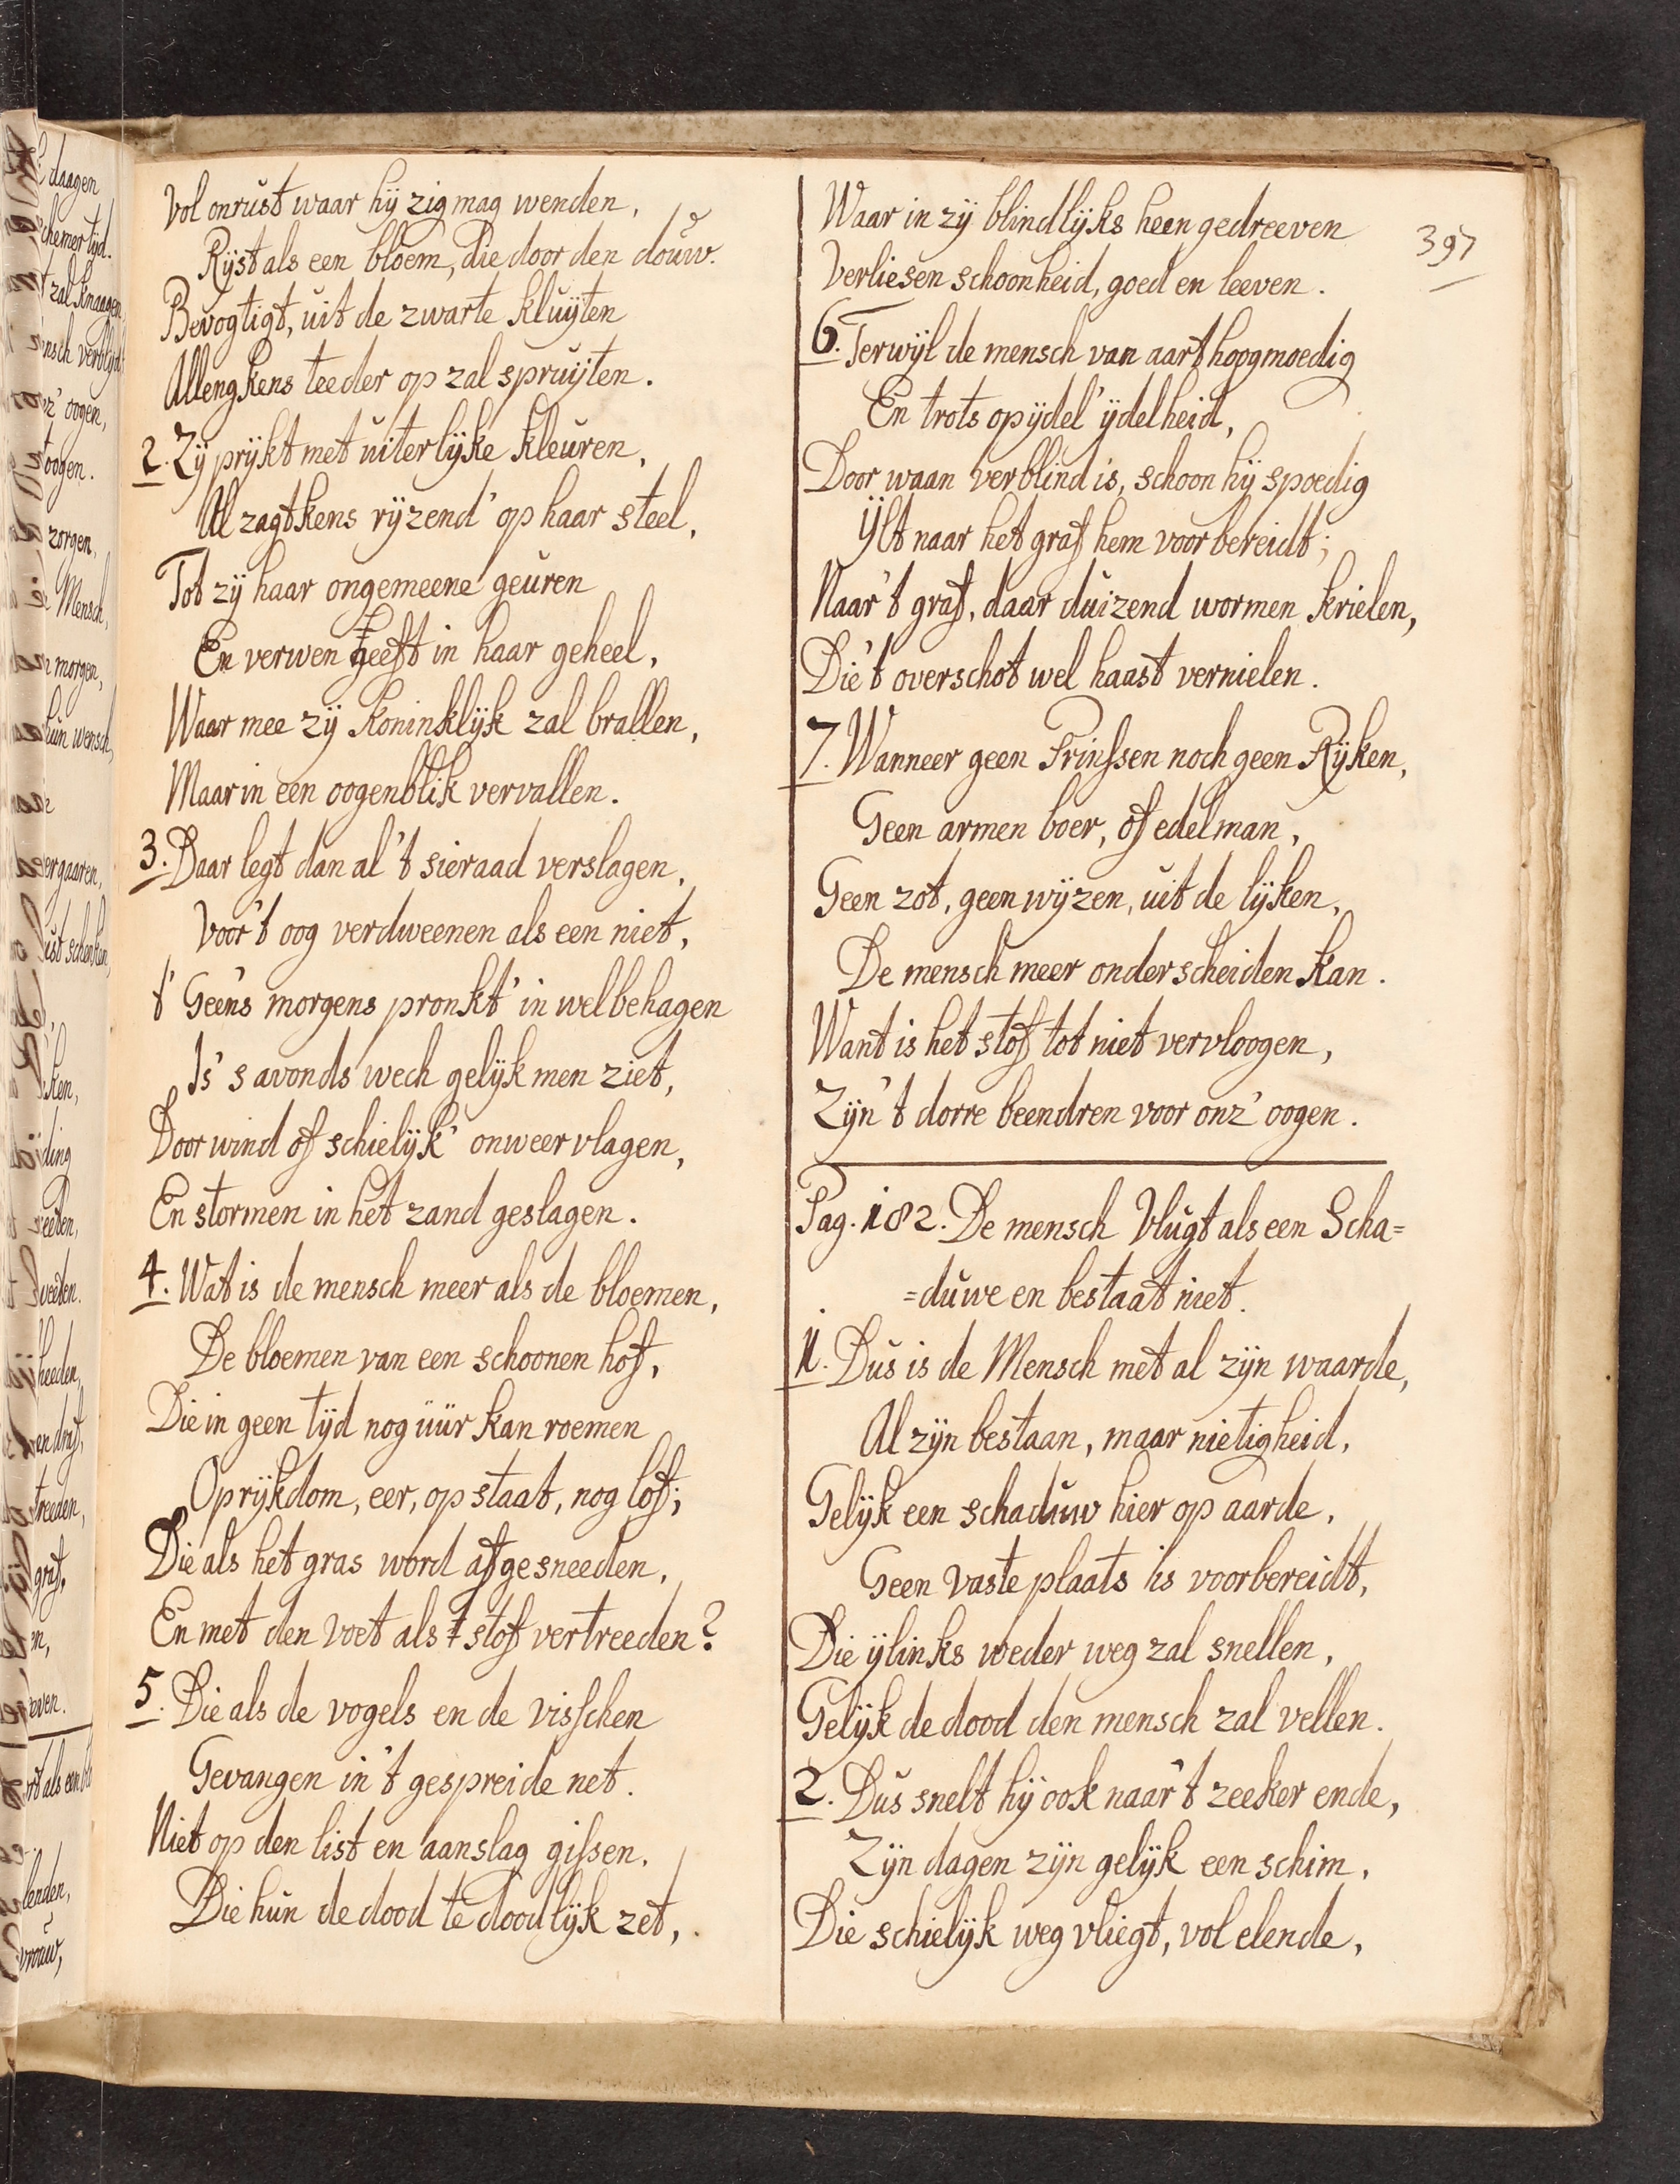 Vol onrust waar hij zig mag wenden,
Rijst als een bloem, die door den douw.
Bevogtigt, uit de zwarte kluijten
Allengskens teeder op zal spruijten.
2. Zij prijkt met uiterlijke kleuren,
Al zagtkens rijzend' op haar steel,
Tot zij haar ongemeene geuren
En verwen heeft in haar geheel,
Waar mee zij koninklijk zal brallen,
Maar in een oogenblik vervallen.
3. Daar legt dan al 't sieraad verslagen,
Voor 't oog verdweenen als een niet,
t' Geen 's morgens pronkt' in welbehagen
Is 's avonds wech gelijk men ziet,
Door wind of schielijk' onweer vlagen,
En stormen in het zand geslagen.
4. Wat is de mensch meer als de bloemen,
De bloemen van een schoonen hof,
Die in geen tijd nog uur kan roemen
Op rijkdom, eer, op staat, nog lof;
Die als het gras word afgesneeden,
En met den voet als 't stof vertreeden?
5. Die als de vogels en de visschen
Gevangen in 't gespreide net.
Niet op den list en aanslag gissen,
Die hun de dood te doodlijk zet,
Waar in zij blindlijks heen gedreeven
Verliesen schoonheid, goed en leeven.
397
6. Terwijl de mensch van aart hoogmoedig
En trots op ijdel' ijdelheid,
Door waan verblind is, schoon hij spoedig
IJlt naar het graf hem voorbereidt;
Naar 't graf, daar duizend wormen krielen,
Die 't overschot wel haast vernielen.
7. Wanneer geen Prinssen noch geen Rijken,
Geen armen boer, of edelman,
Geen zot, geen wijzen, uit de lijken,
De mensch meer onderscheiden kan.
Want is het stof tot niet vervloogen,
Zijn 't dorre beendren voor onz' oogen.
Pag. 182. De mensch Vlugt als een Scha=
=duwe en bestaat niet.
1. Dus is de Mensch met al zijn waarde,
Al zijn bestaan, maar nietigheid,
Gelijk een schaduw hier op aarde,
Geen vaste plaats is voorbereidt,
Die ijlinks weder weg zal snellen,
Gelijk de dood den mensch zal vellen.
2. Dus snelt hij ook naar 't zeeker ende,
Zijn dagen zijn gelijk een schim,
Die schielijk weg vliegt, vol elende,